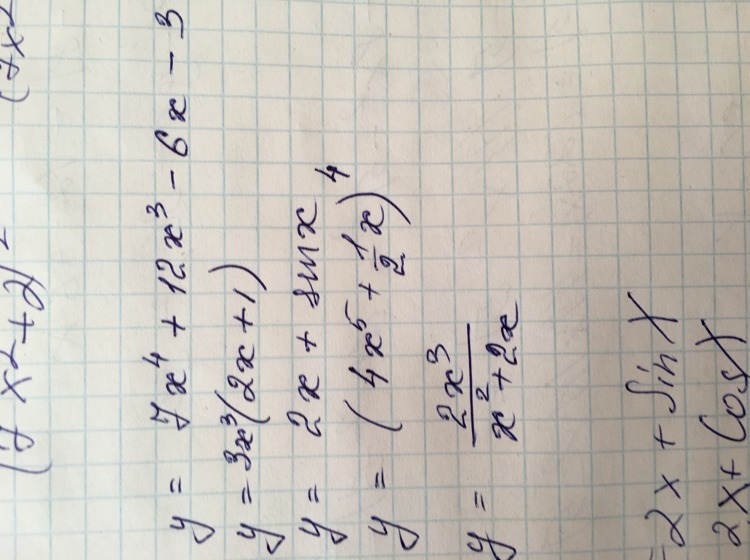 (7x²
(7x²+2)²
y = 7x⁴ + 12x³ - 6x - 3
y = 3x³(2x+1)
y = 2x + sin x
y = (4x⁵ + 1/2 x)⁴
y = 2x³/(x² + 2x)
2x + Sin x
2x + Cos x